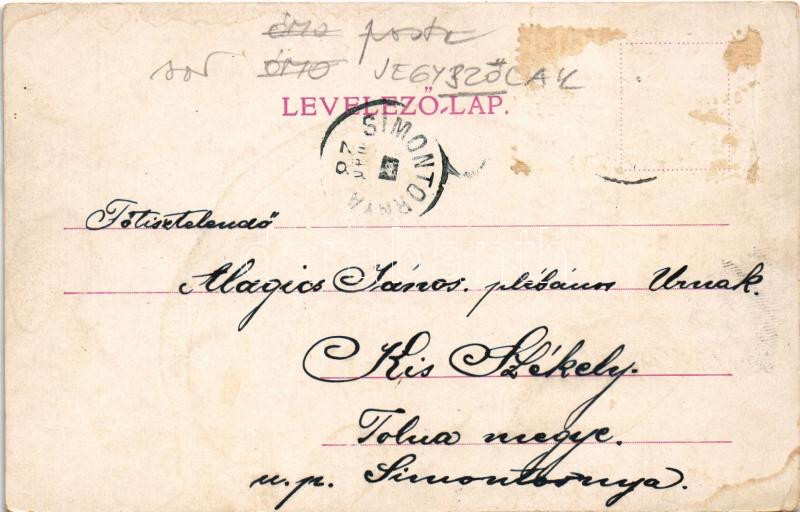 ÓMO poste
ÓMO JEGYSZŐLAK
LEVELEZŐ-LAP.
SIMONTORNYA
Főtisztelendő
Alagics János. plébános Urnak.
Kis Székely.
Tolna megye.
u.p. Simontornya.